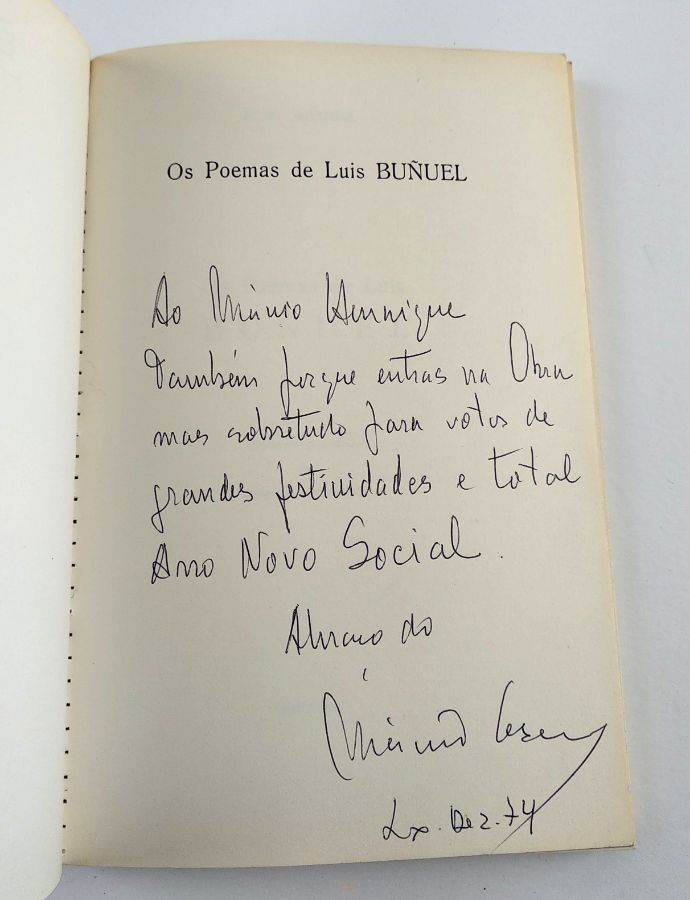 Os Poemas de Luis BUÑUEL
Ao Mário Henrique
Também porque entras na Obra
mas sobretudo para votos de
grandes festividades e total
Ano Novo Social.
Abraço do
Mário Cesariny
Lx. Dez. 74